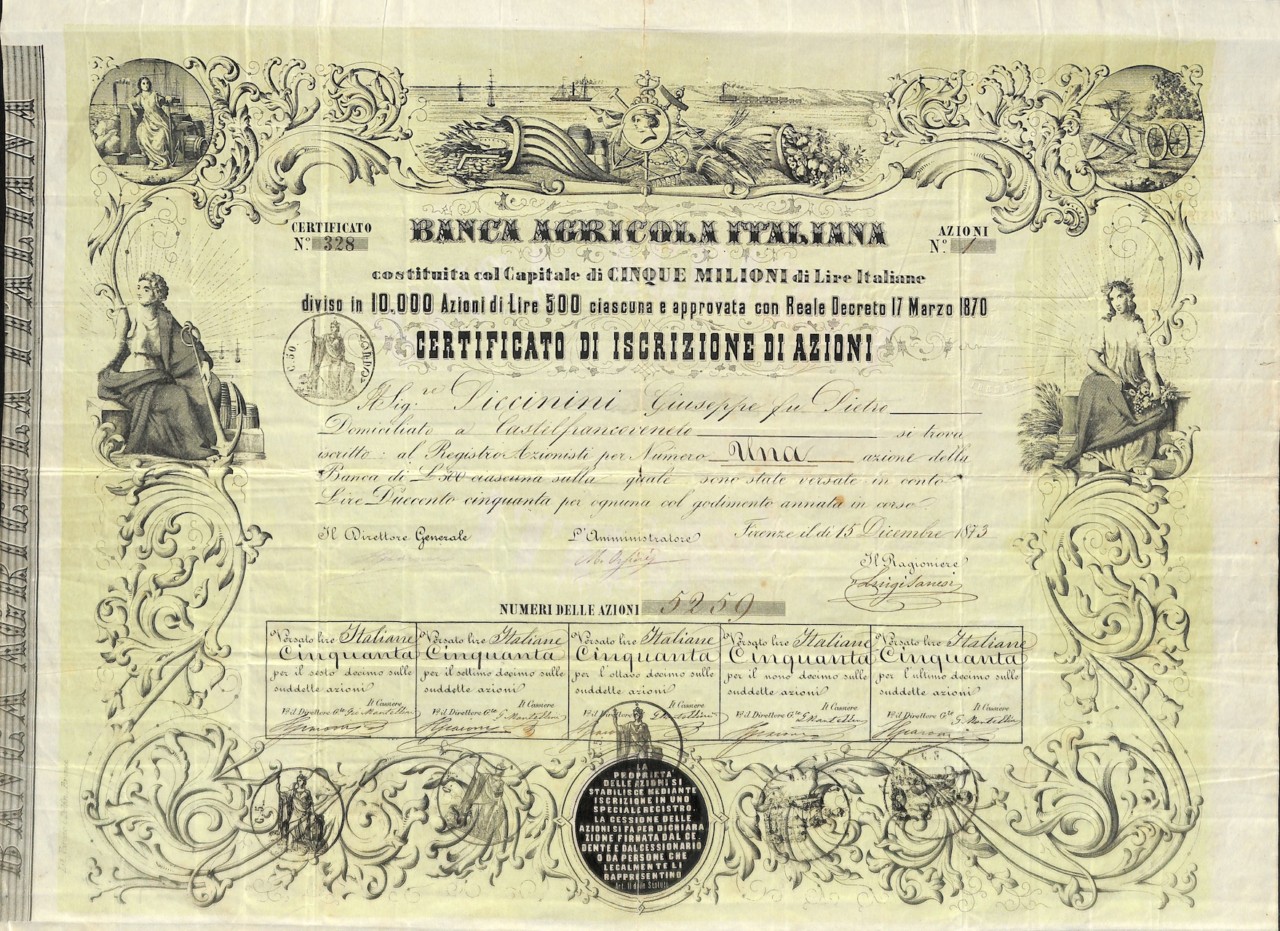 CERTIFICATO
N.º 328
BANCA AGRICOLA ITALIANA
AZIONI
N.º 1
costituita col Capitale di CINQUE MILIONI di Lire Italiane
diviso in 10,000 Azioni di Lire 500 ciascuna e approvata con Reale Decreto 17 Marzo 1870
CERTIFICATO DI ISCRIZIONE DI AZIONI
C. 50
Il Sig.re Piccinini Giuseppe fu Pietro
Domiciliato a Castelfrancoveneto si trova
iscritto al Registro Azionisti per Numero Una azione della
Banca di L. 500 ciascuna sulla quale sono state versate in conto
Lire Ducento cinquanta per ognuna col godimento annata in corso
Il Direttore Generale
L'Amministratore
Firenze il di 15 Dicembre 1873
Il Ragioniere
Luigi Sanesi
NUMERI DELLE AZIONI 5259
Versato lire Italiane Cinquanta per il sesto decimo sulle suddette azioni
Il Cassiere
Vº il Direttore G.le
Versato lire Italiane Cinquanta per il settimo decimo sulle suddette azioni
Il Cassiere
Vº il Direttore G.le
Versato lire Italiane Cinquanta per l'ottavo decimo sulle suddette azioni
Il Cassiere
Vº il Direttore G.le
Versato lire Italiane Cinquanta per il nono decimo sulle suddette azioni
Il Cassiere
Vº il Direttore G.le
Versato lire Italiane Cinquanta per l'ultimo decimo sulle suddette azioni
Il Cassiere
Vº il Direttore G.le
C. 5
LA
PROPRIETA'
DELLE AZIONI SI
STABILISCE MEDIANTE
ISCRIZIONE IN UNO
SPECIALE REGISTRO.
LA CESSIONE DELLE
AZIONI SI FA PER DICHIARA
ZIONE FIRMATA DAL CE
DENTE E DAL CESSIONARIO
O DA PERSONE CHE
LEGALMENTE LI
RAPPRESENTINO
Art. 11 dello Statuto
BANCA AGRICOLA ITALIANA